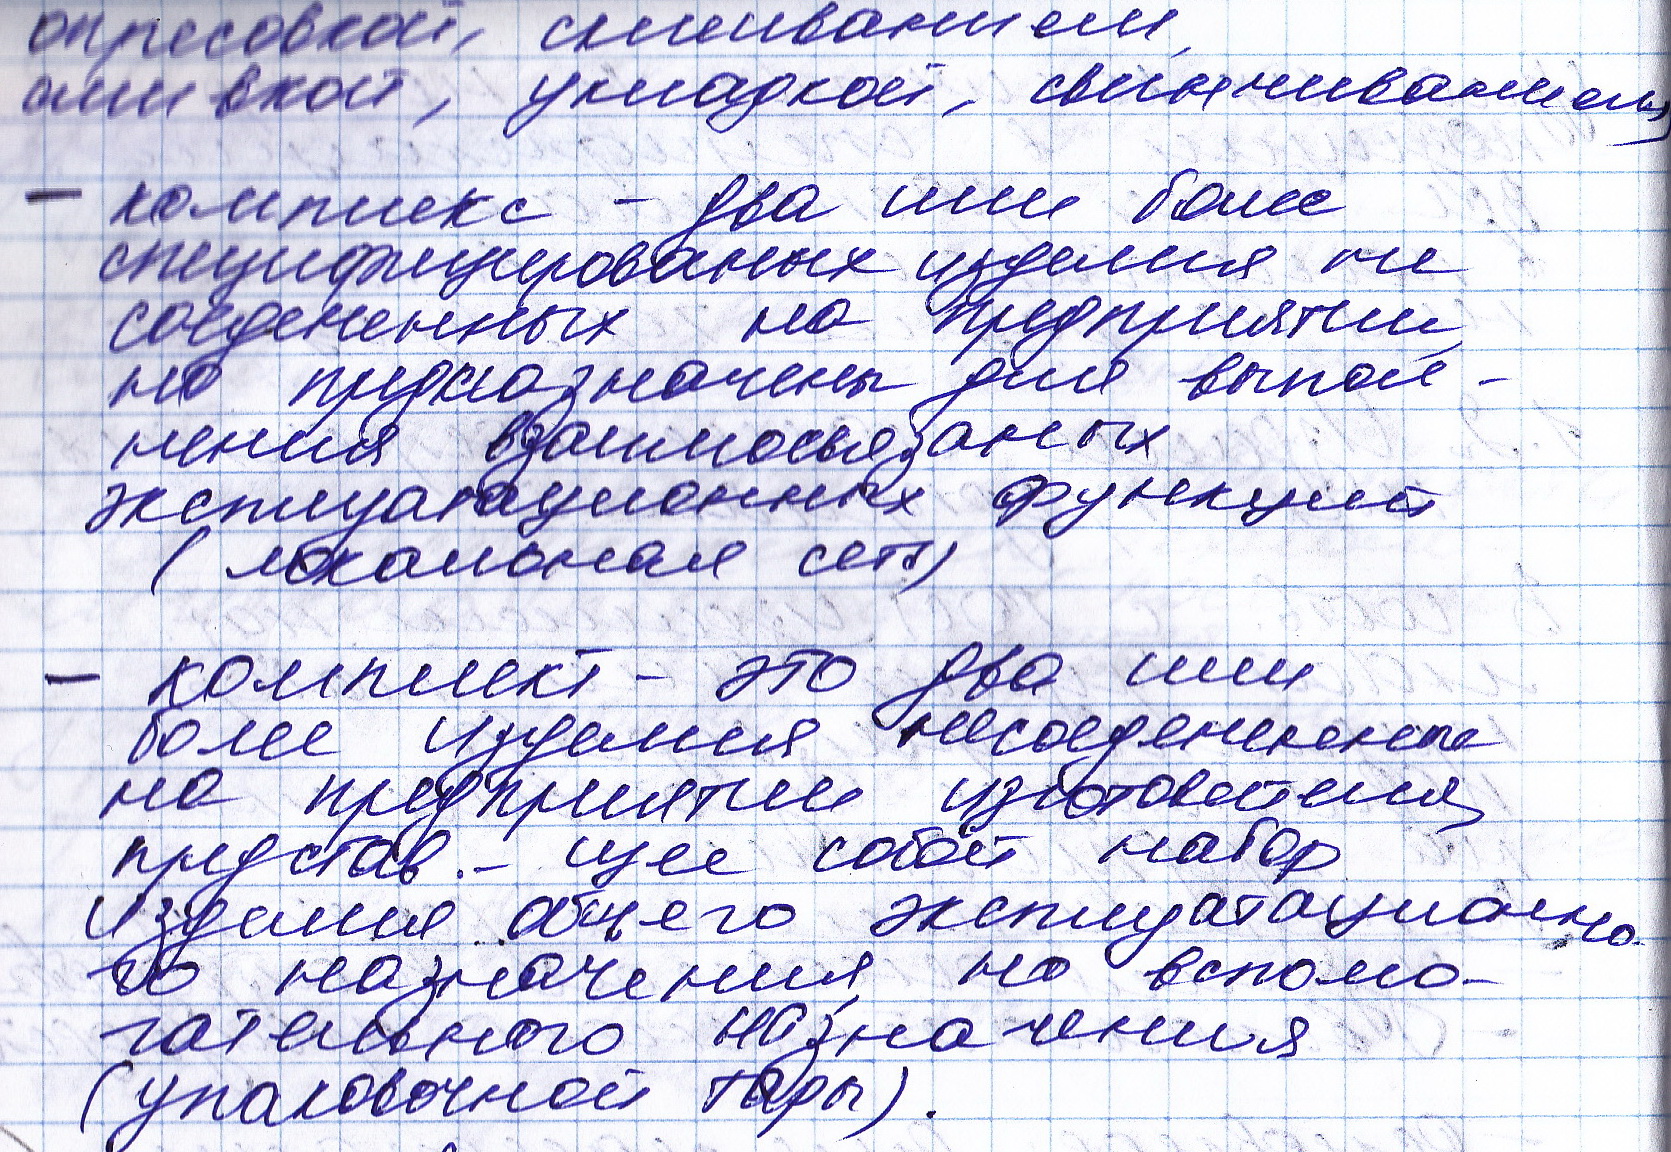 опрсовкой, склеиванием,
сшивкой, укладкой, свинчиванием,
- комплекс - два или более
специфицированых изделия не
соедененных на предприятии,
но предназначены для выпол-
нения взаимосвязаных
эксплуатационных функций
( локальная сеть)
- комплект - это два или
более изделия несоедененные
на предприятии изготовителя,
представ.- щее собой набор
изделия общего эксплуатационно
го назначения, но вспомо-
гательного назначения
(упаковочной тары).